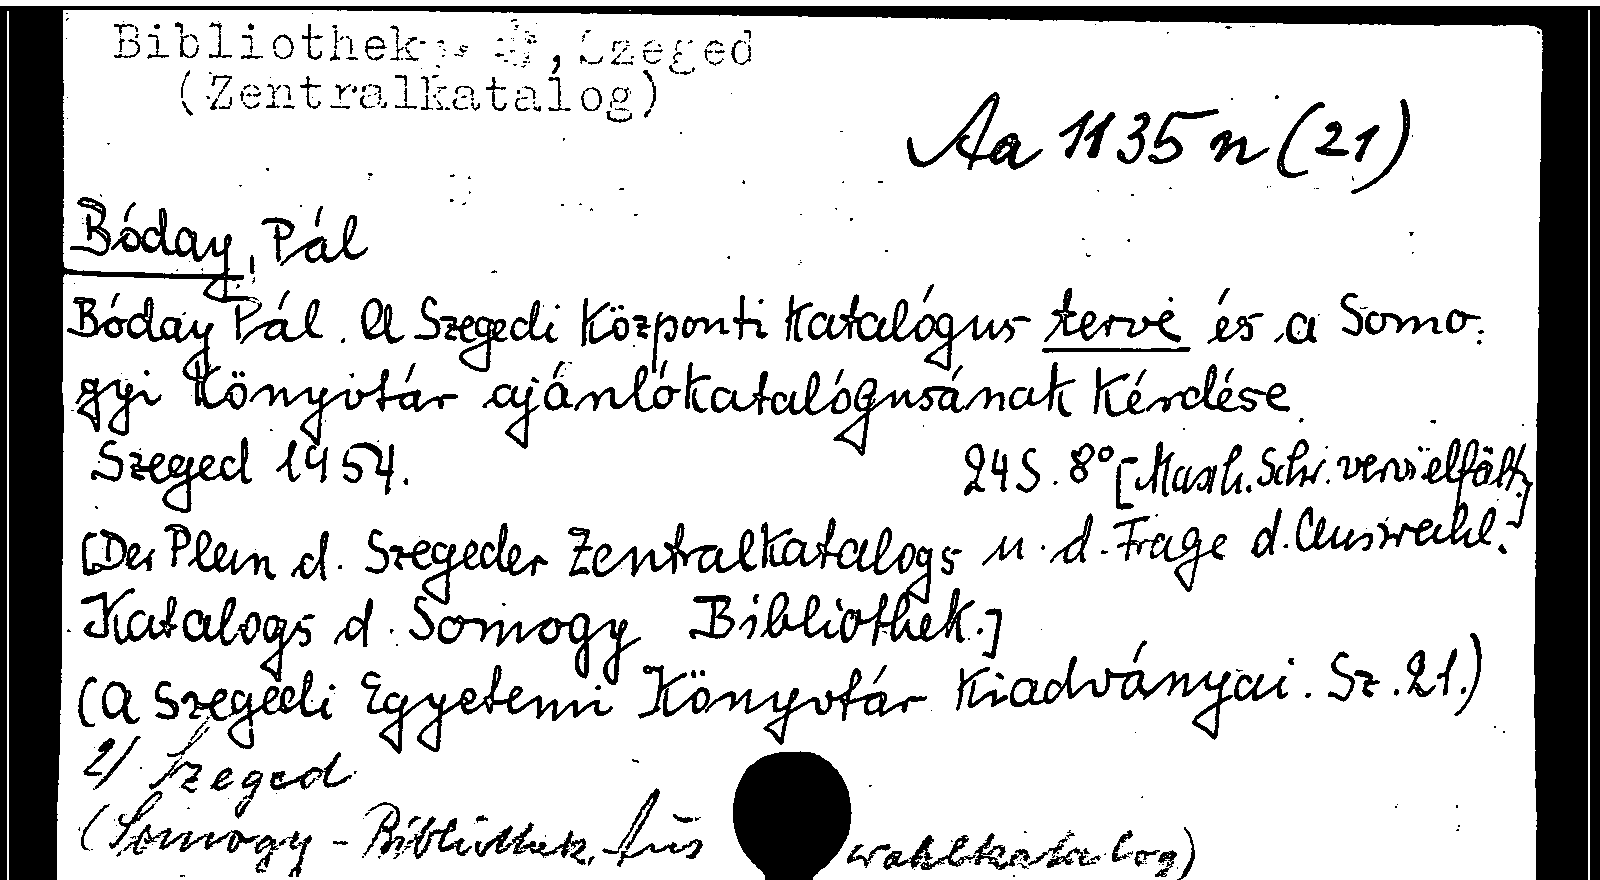 Bibliothek, Szeged
(Zentralkatalog)
Aa 1135 n (21)
Bóday, Pál
Bóday Pál. A Szegedi Központi Katalógus terve és a Somo-
gyi Könyvtár ajánlókatalógusának Kérdése.
Szeged 1954. 24 S. 8° [Masch. Schr. vervielfält.]
[Der Plan d. Szegeder Zentralkatalogs u. d. Frage d. Auswahl-
Katalogs d. Somogy Bibliothek.]
(A Szegedi Egyetemi Könyvtár Kiadványai. Sz. 21.)
2/ Szeged
(Somogy-Bibliothek, Auswahlkatalog)